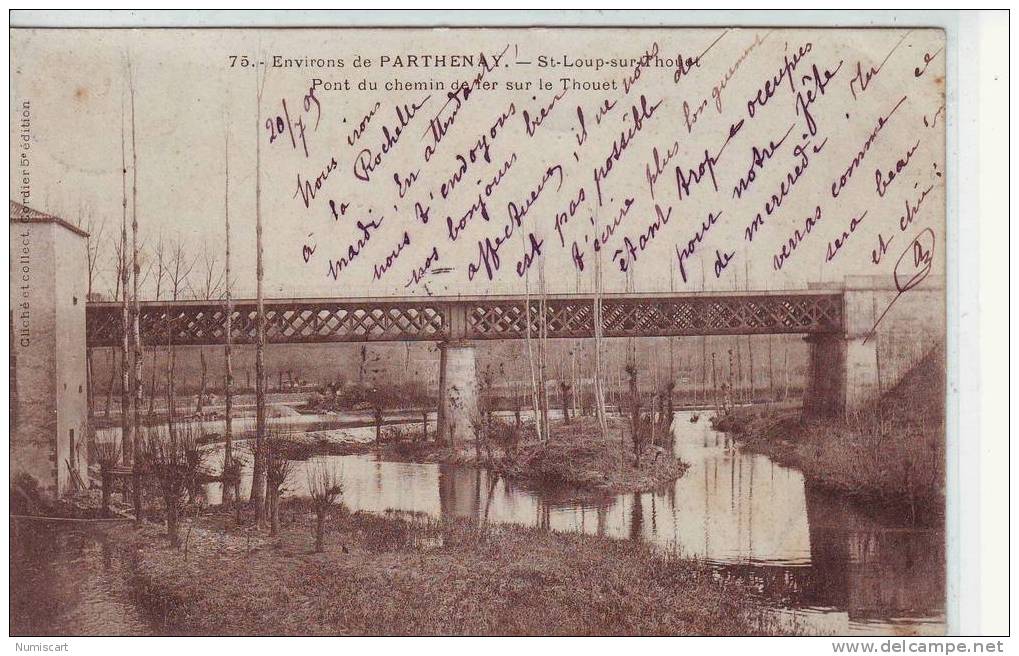 75. - Environs de PARTHENAY. — St-Loup-sur-Thouet
Pont du chemin de fer sur le Thouet
Cliché et collect. Cordier 5e édition
20/7 05
Nous irons
à la Rochelle
mardi. En attendant
nous t'endoyons
nos bonjours bien
affectueux, il ne nous
est pas possible de
t'écrire plus longuement
étant trop occupés
pour notre fête
de mercredi. Tu
verras comme ce
sera beau
et chic!
Numiscart
www.delcampe.net